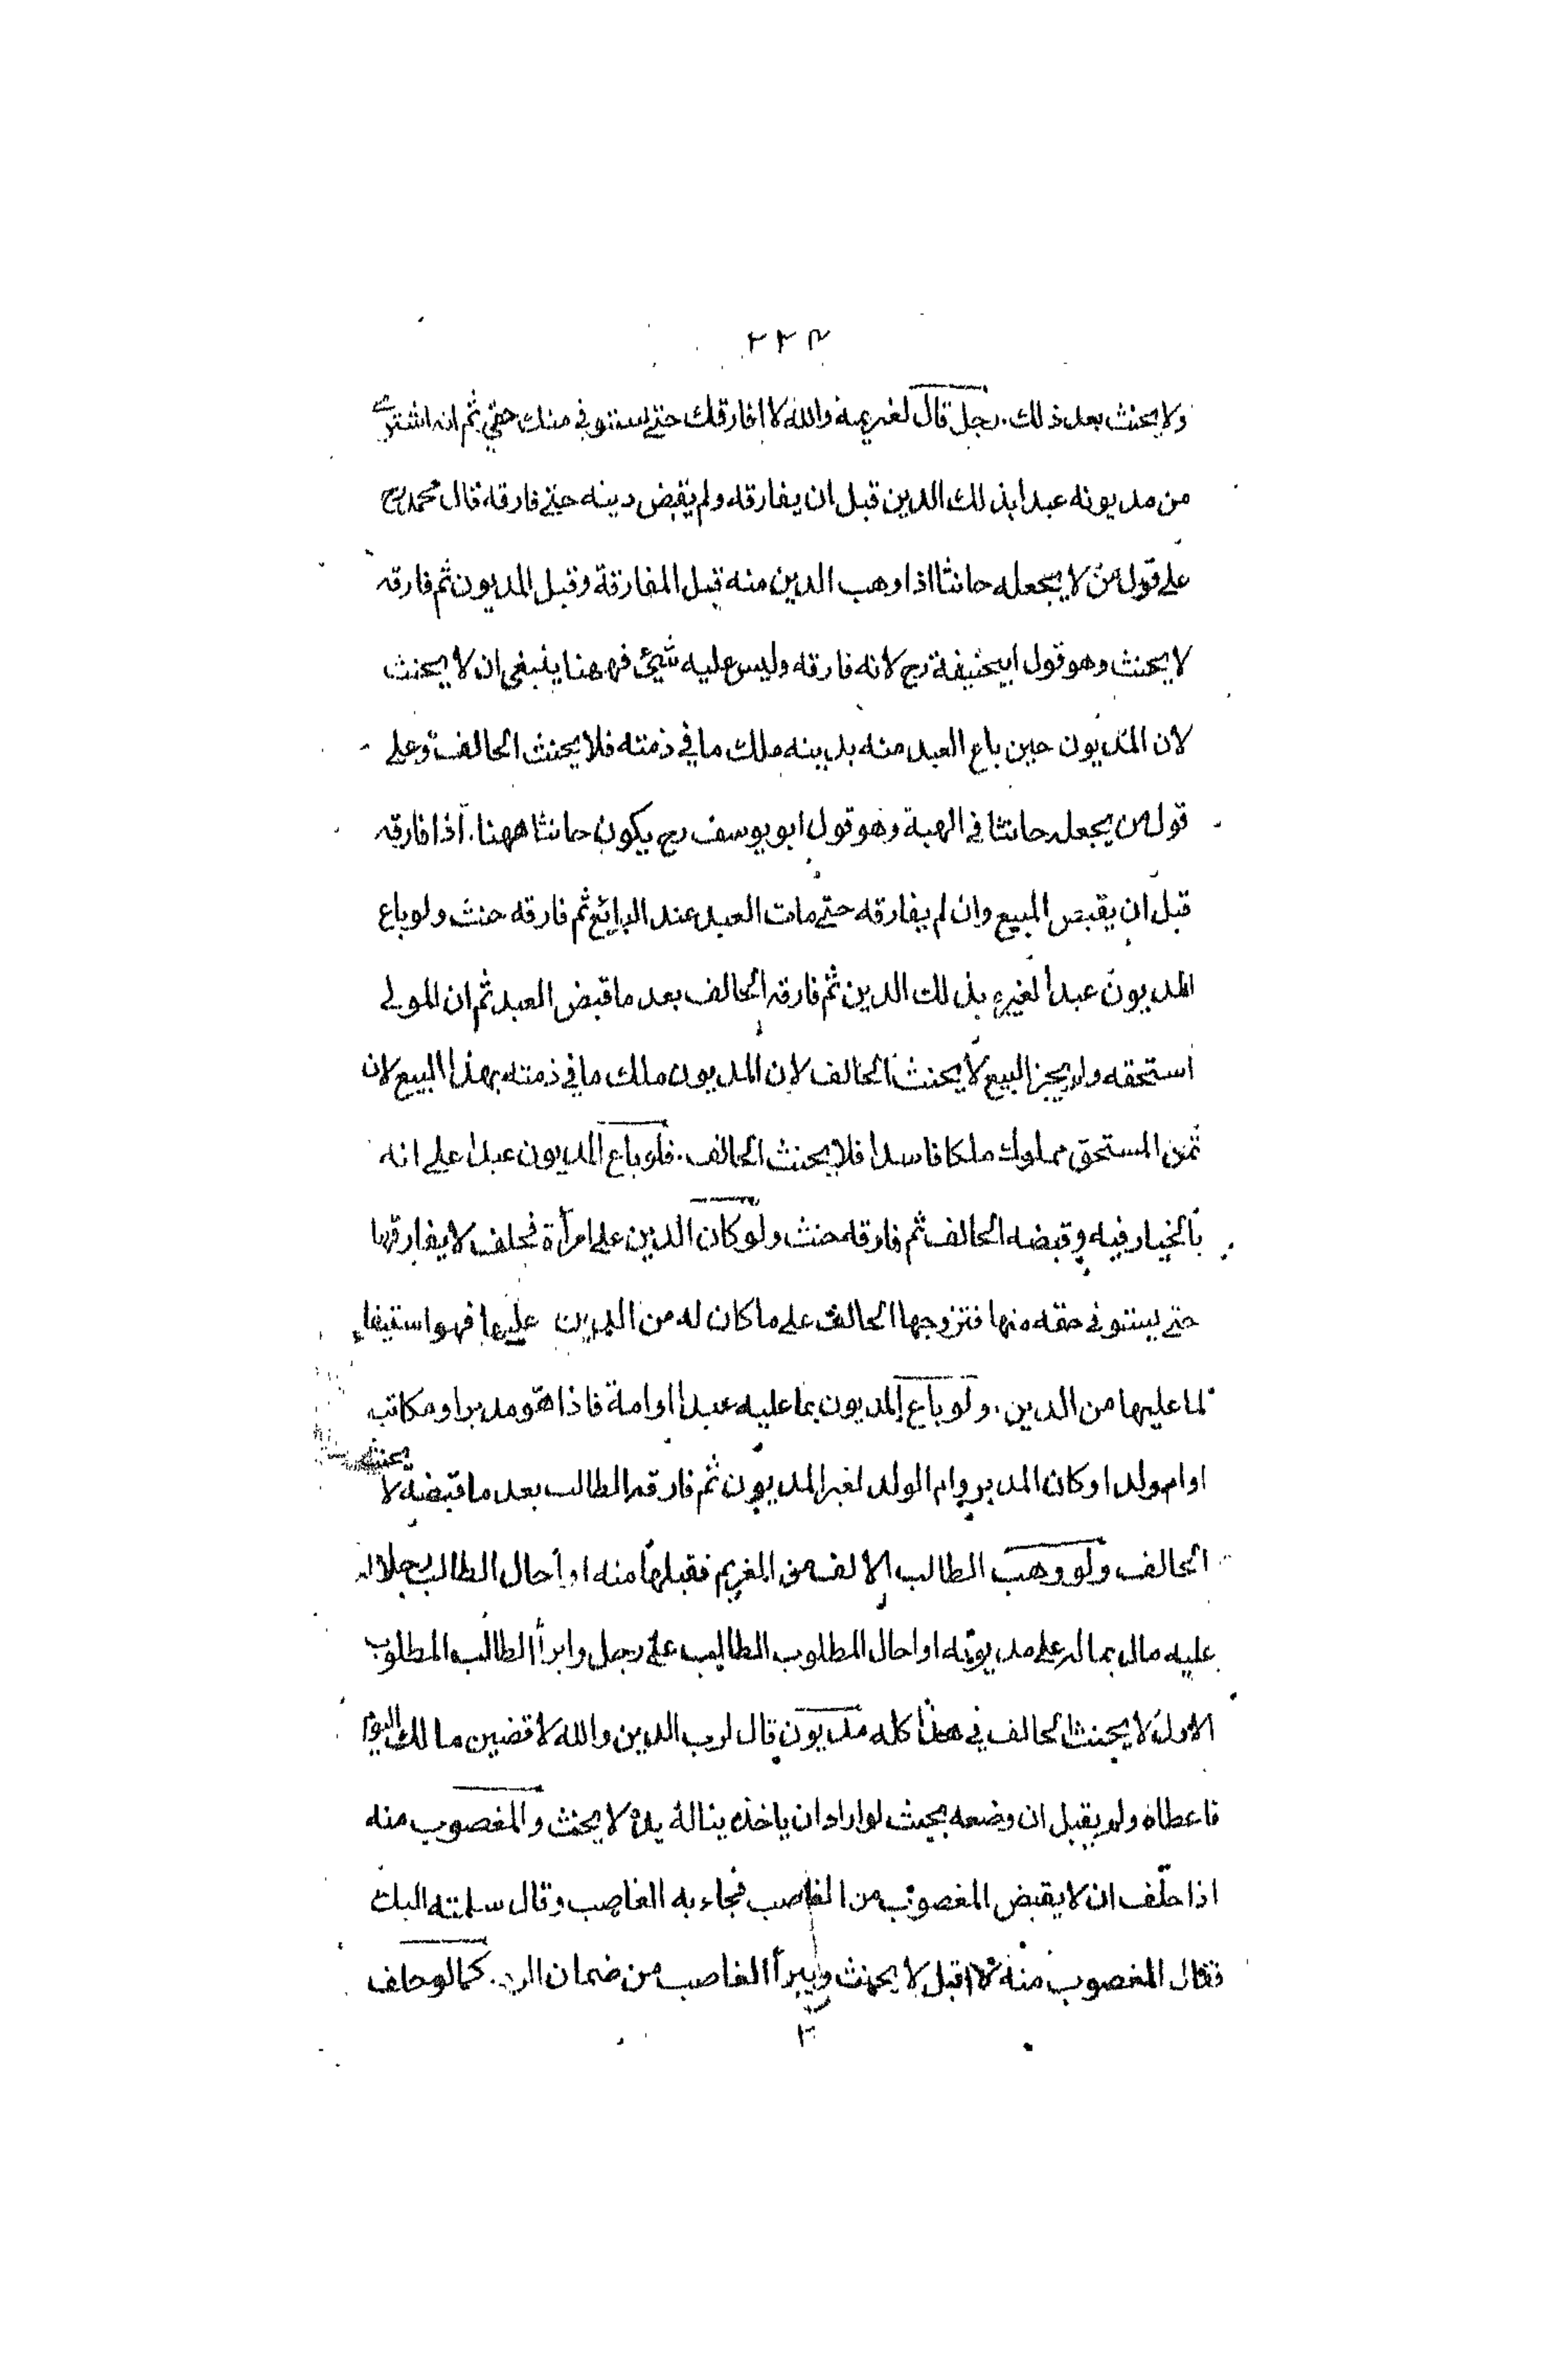 ٢٢٣
ولا يحنث بعد ذلك. رجل قال لغريمه والله لا افارقك حتى استوفي منك حقي ثم انه اشترى
من مديونه عبدا بذلك الدين قبل ان يفارقه ولم يقبض دينه حتى فارقه قال محمد رح
على قول من لا يجعله حانثا اذا وهب الدين منه قبل المفارقة وقبل المديون ثم فارقه
لا يحنث وهو قول ابيحنيفة رح لانه فارقه وليس عليه شيئ فههنا ينبغي ان لا يحنث
لان المديون حين باع العبد منه بدينه ملك ما في ذمته فلا يحنث الحالف وعلى
قول من يجعله حانثا في الهبة وهو قول ابو يوسف رح يكون حانثا ههنا. اذا فارقه
قبل ان يقبض المبيع وان لم يفارقه حتى مات العبد عند البائع ثم فارقه حنث ولو باع
المديون عبدا لغيره بذلك الدين ثم فارقه الحالف بعد ما قبض العبد ثم ان المولى
استحقه ولم يجز البيع لا يحنث الحالف لان المديون ملك ما في ذمته بهذا البيع لان
ثمن المستحق مملوك ملكا فاسدا فلا يحنث الحالف. فلو باع المديون عبدا على انه
بالخيار فيه وقبضه الحالف ثم فارقه حنث ولو كان الدين على امرأة فحلف لا يفارقها
حتى يستوفي حقه منها فتزوجها الحالف على ما كان له من الدين عليها فهو استيفاء
لما عليها من الدين. ولو باع المديون بما عليه عبدا او امة فاذا هو مدبر او مكاتب
او ام ولد او كان المدبر وام الولد لغير المديون ثم فارقه الطالب بعد ما قبضه لا يحنث
الحالف ولو وهب الطالب الالف من الغريم فقبلها منه او احال الطالب رجلا له
عليه مال بماله على مديونه او احال المطلوب الطالب على رجل وابرأ الطالب المطلوب
الاول لا يحنث الحالف في هذا كله مديون قال لرب الدين والله لاقضين مالك اليوم
فاعطاه ولم يقبل ان وضعه بحيث لو اراد ان ياخذه يناله يده لا يحنث والمغصوب منه
اذا حلف ان لا يقبض المغصوب من الغاصب فجاء به الغاصب وقال سلمته اليك
فقال المغصوب منه لا اقبل لا يحنث ويبرأ الغاصب من ضمان الرد. كما لو حلف